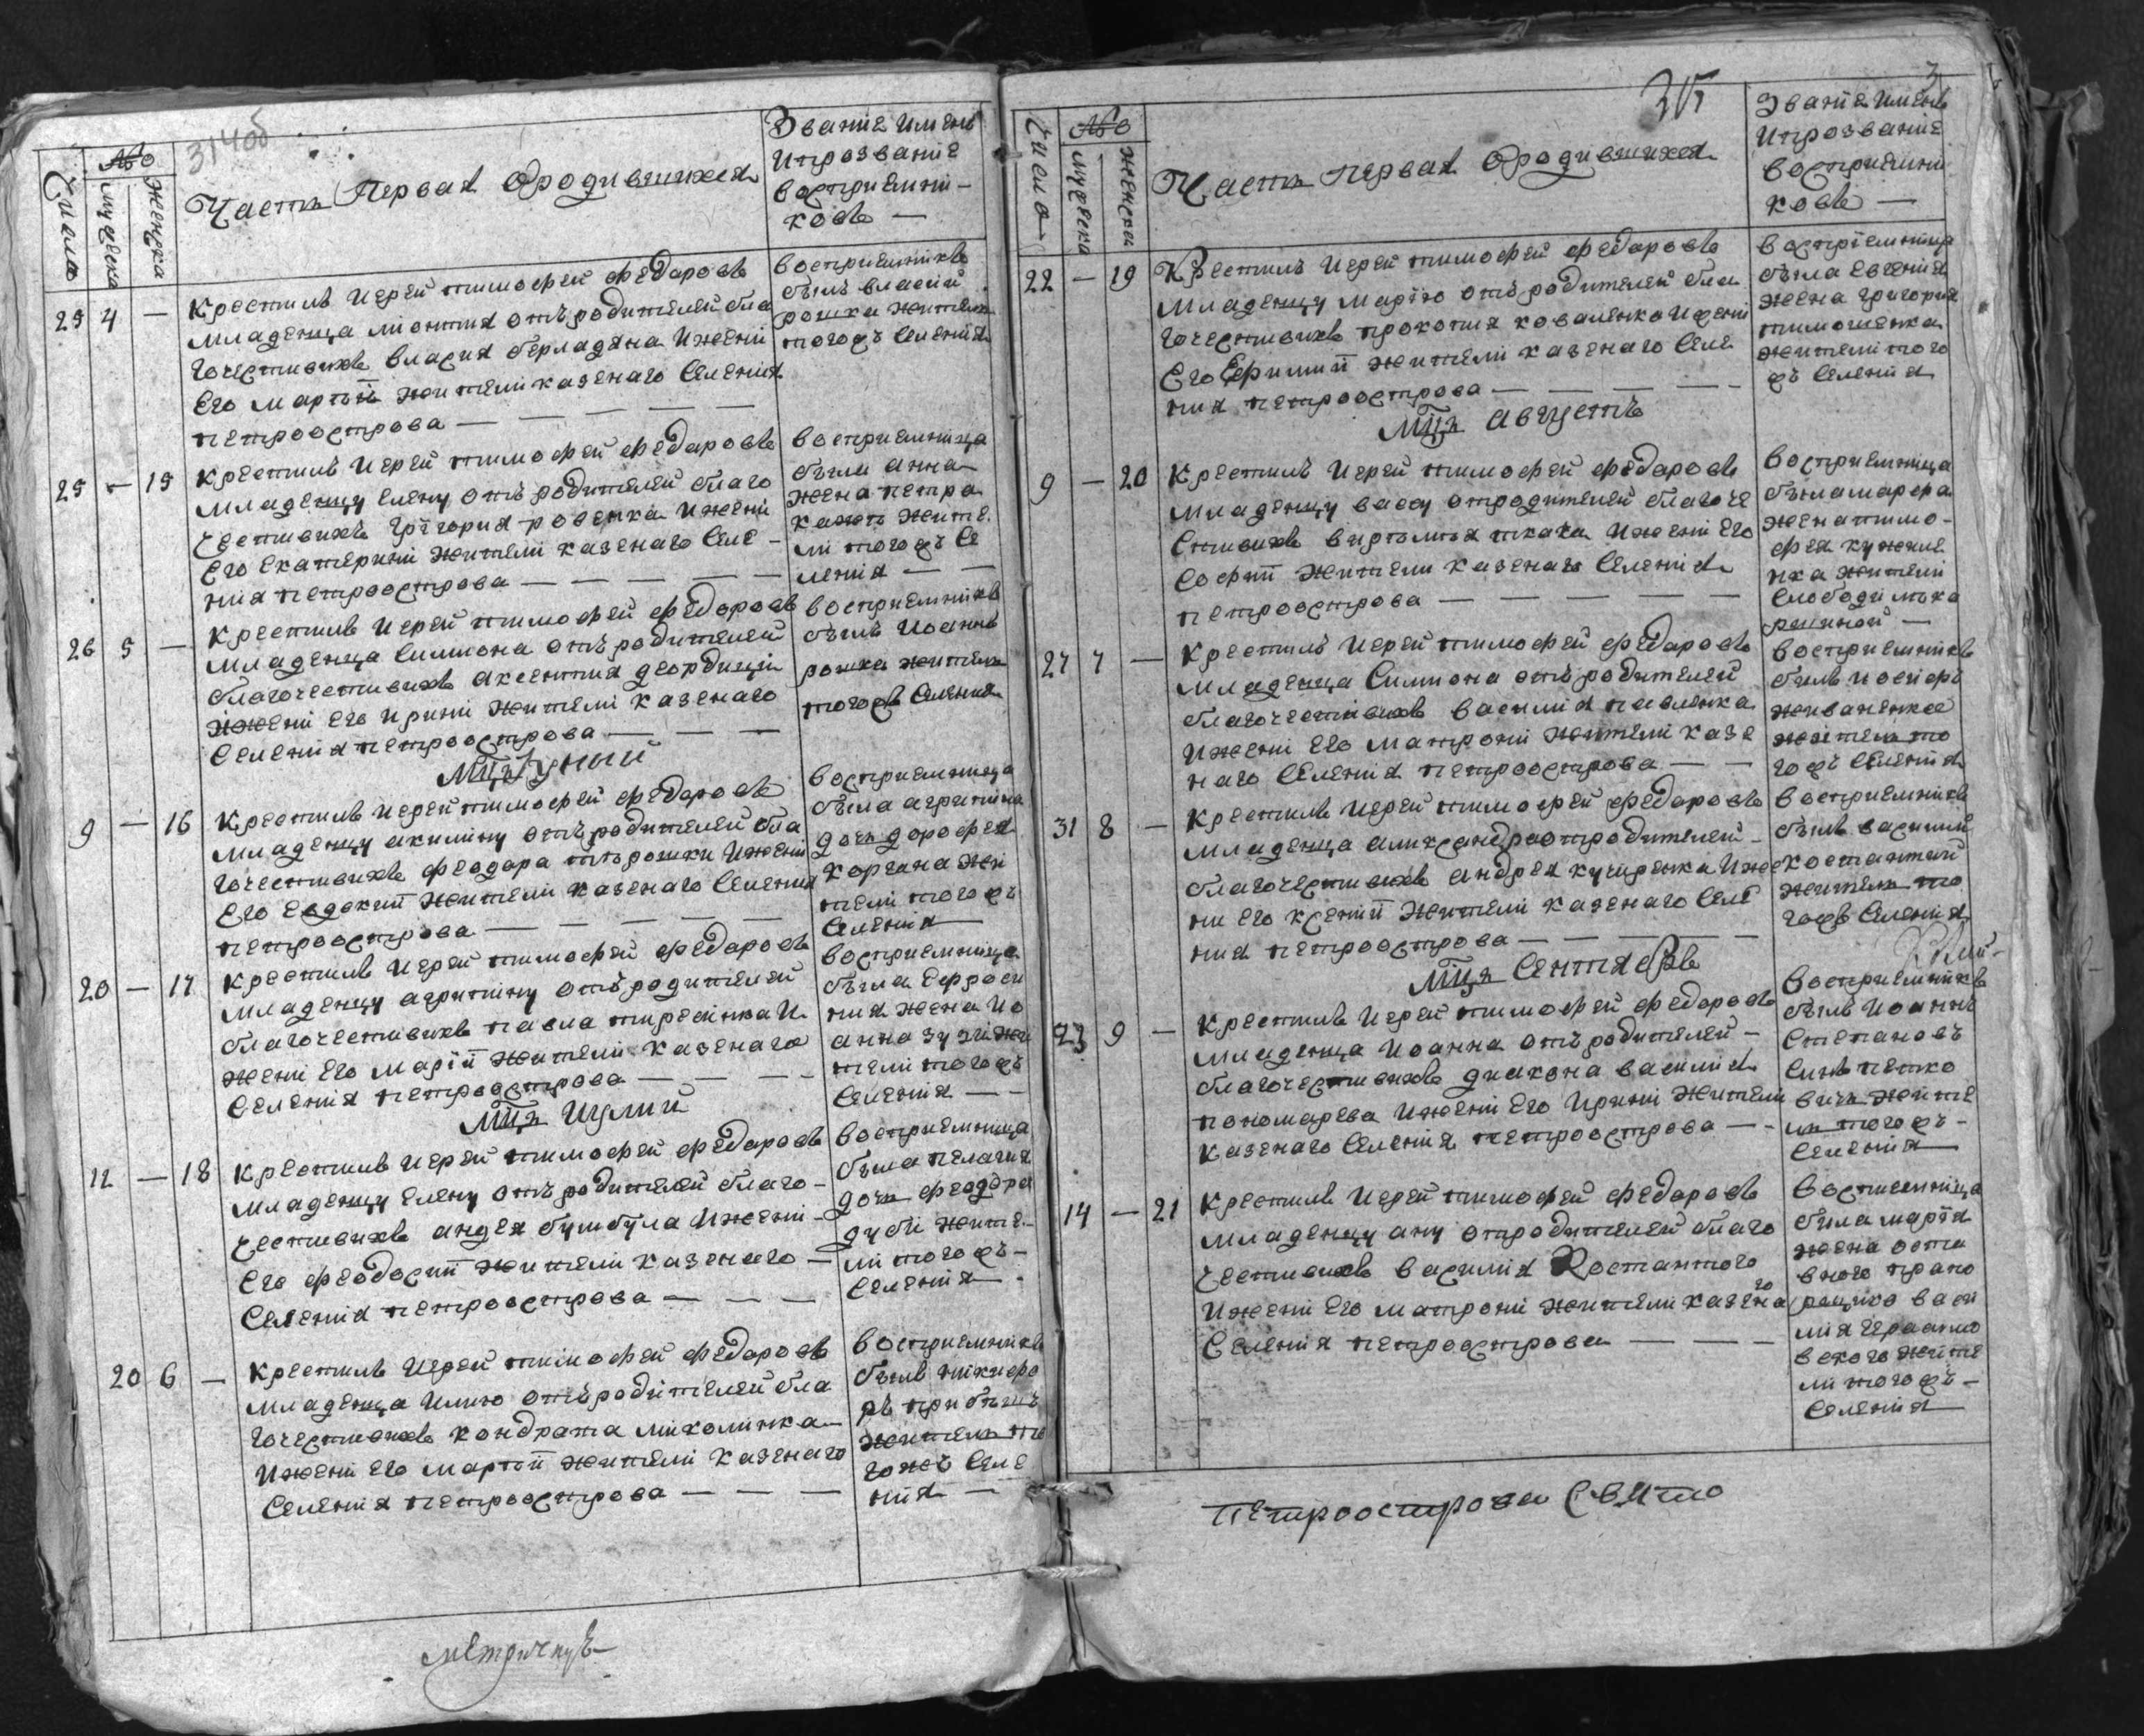 314об
Число
№
мужеска
женска
Часть Первая Ородившихся
Звание имень
ипрозвание
восприемни-
ковъ —
25 4 — Крестилъ Иерей тимофей федаровъ
младенца леонтия отъ родителей бла
гочестивихъ власия берладяна ижени
Его марфы жители казенаго Селения
петроострова — — — —
восприемникъ
былъ власий
рошка житель
тогожъ Селения
25 — 15 Крестилъ Иерей тимофей федаровъ
младенцу Елену отъ родителей благо
честивихъ григория ижени
Его Екатерини жители казенаго Селе-
ния петроострова — — — — —
восприемница
была анна
жена петра
жите
ли тогожъ Се
ления — —
26 5 — Крестилъ Иерей тимофей федаровъ
младенца Симиона отъ родителей
благочестивихъ аксентия деордици
ижени Его Ирини жители казенаго
Селения петроострова — — —
восприемникъ
былъ Иоаннъ
рошка житель
тогожъ Селения
Мцъ Іуний
9 — 16 Крестилъ Иерей тимофей федаровъ
младенцу акилину отъ родителей бла
гочестивихъ феодара ижени
Его Евдокии жители казенаго Селения
петроострова — — — —
восприемница
была агрипина
дочь дорофея
жи
тели тогожъ
Селения
20 — 17 Крестилъ Иерей тимофей федаровъ
младенцу агрипину отъ родителей
благочестивихъ павла и
жени Его Марии жители казенаго
Селения петроострова — — —
восприемница
была Ефроси
ния жена Ио
анна жи
тели тогожъ
Селения — —
Мцъ Иулий
12 — 18 Крестилъ Иерей тимофей федаровъ
младенцу Елену отъ родителей благо-
честивихъ андея бутбула ижени-
Его феодосии жители казенаго —
Селения петроострова — — —
восприемница
была пелагия
дочь феодора
жите-
ли тогожъ-
Селения
20 6 — Крестилъ Иерей тимофей федаровъ
младенца Илию отъ родителей бла
гочестивихъ кондрата миколинка
ижени Его марфи жители казенаго
Селения петроострова — — —
восприемникъ
былъ никифо
ръ
житель то
гожъ Селе
ния —
метричнуъ
315
3
Число
№
мужеска
женска
Часть первая Ородившихся
Звание имень
ипрозвание
восприемни
ковъ —
22 — 19 Крестилъ Иерей тимофей федаровъ
младенцу марию отъ родителей бла
гочестивихъ прокопия коваленка ижени
Его Ефимии жители казенаго Селе
ния петроострова — — — —
была Евгения
жена григория
тимошенка
жители того
жъ Селения
Мцъ августъ
9 — 20 Крестилъ Иерей тимофей федаровъ
младенцу васу отродителей благоче
стивихъ ткача ижени Его
Софии жители казенаго Селения
петроострова — — — — —
восприемница
была марфа
жена тимо-
фея кужиле
нка жители
Слободи
—
27 7 — Крестилъ Иерей тимофей федаровъ
младенца Симиона отъ родителей
благочестивихъ василия павленка
ижени Его матрони жители казе
наго Селения петроострова — —
восприемникъ
былъ иосифъ
житель то
гожъ Селения
31 8 — Крестилъ Иерей тимофей федаровъ
младенца александра отродителей-
благочестивихъ андрея кучиренка иже
ни Его Ксении жители казенаго Селе
ния петроострова — — — —
восприемникъ
былъ василий
костантий
житель то
гожъ Селения
Мцъ Сентябръ
23 9 — Крестилъ Иерей тимофей федаровъ
младенца Иоанна отъ родителей —
благочестивихъ диакона василия
пономарева ижени Его Ирини жители
казенаго Селения петроострова — —
восприемникъ
былъ Иоаннъ
Степановъ
Синъ петко
вичъ жите
ль тогожъ-
Селения
14 — 21 Крестилъ Иерей тимофей федаровъ
младенцу ану отродителей благо
честивихъ василия Костантого
ижени Его матрони жители казенаго
Селения петроострова — — —
была мария
жена отста
вного прапо
рщика васи
лия
жите
ли тогожъ-
Селения
Петроострова Свято